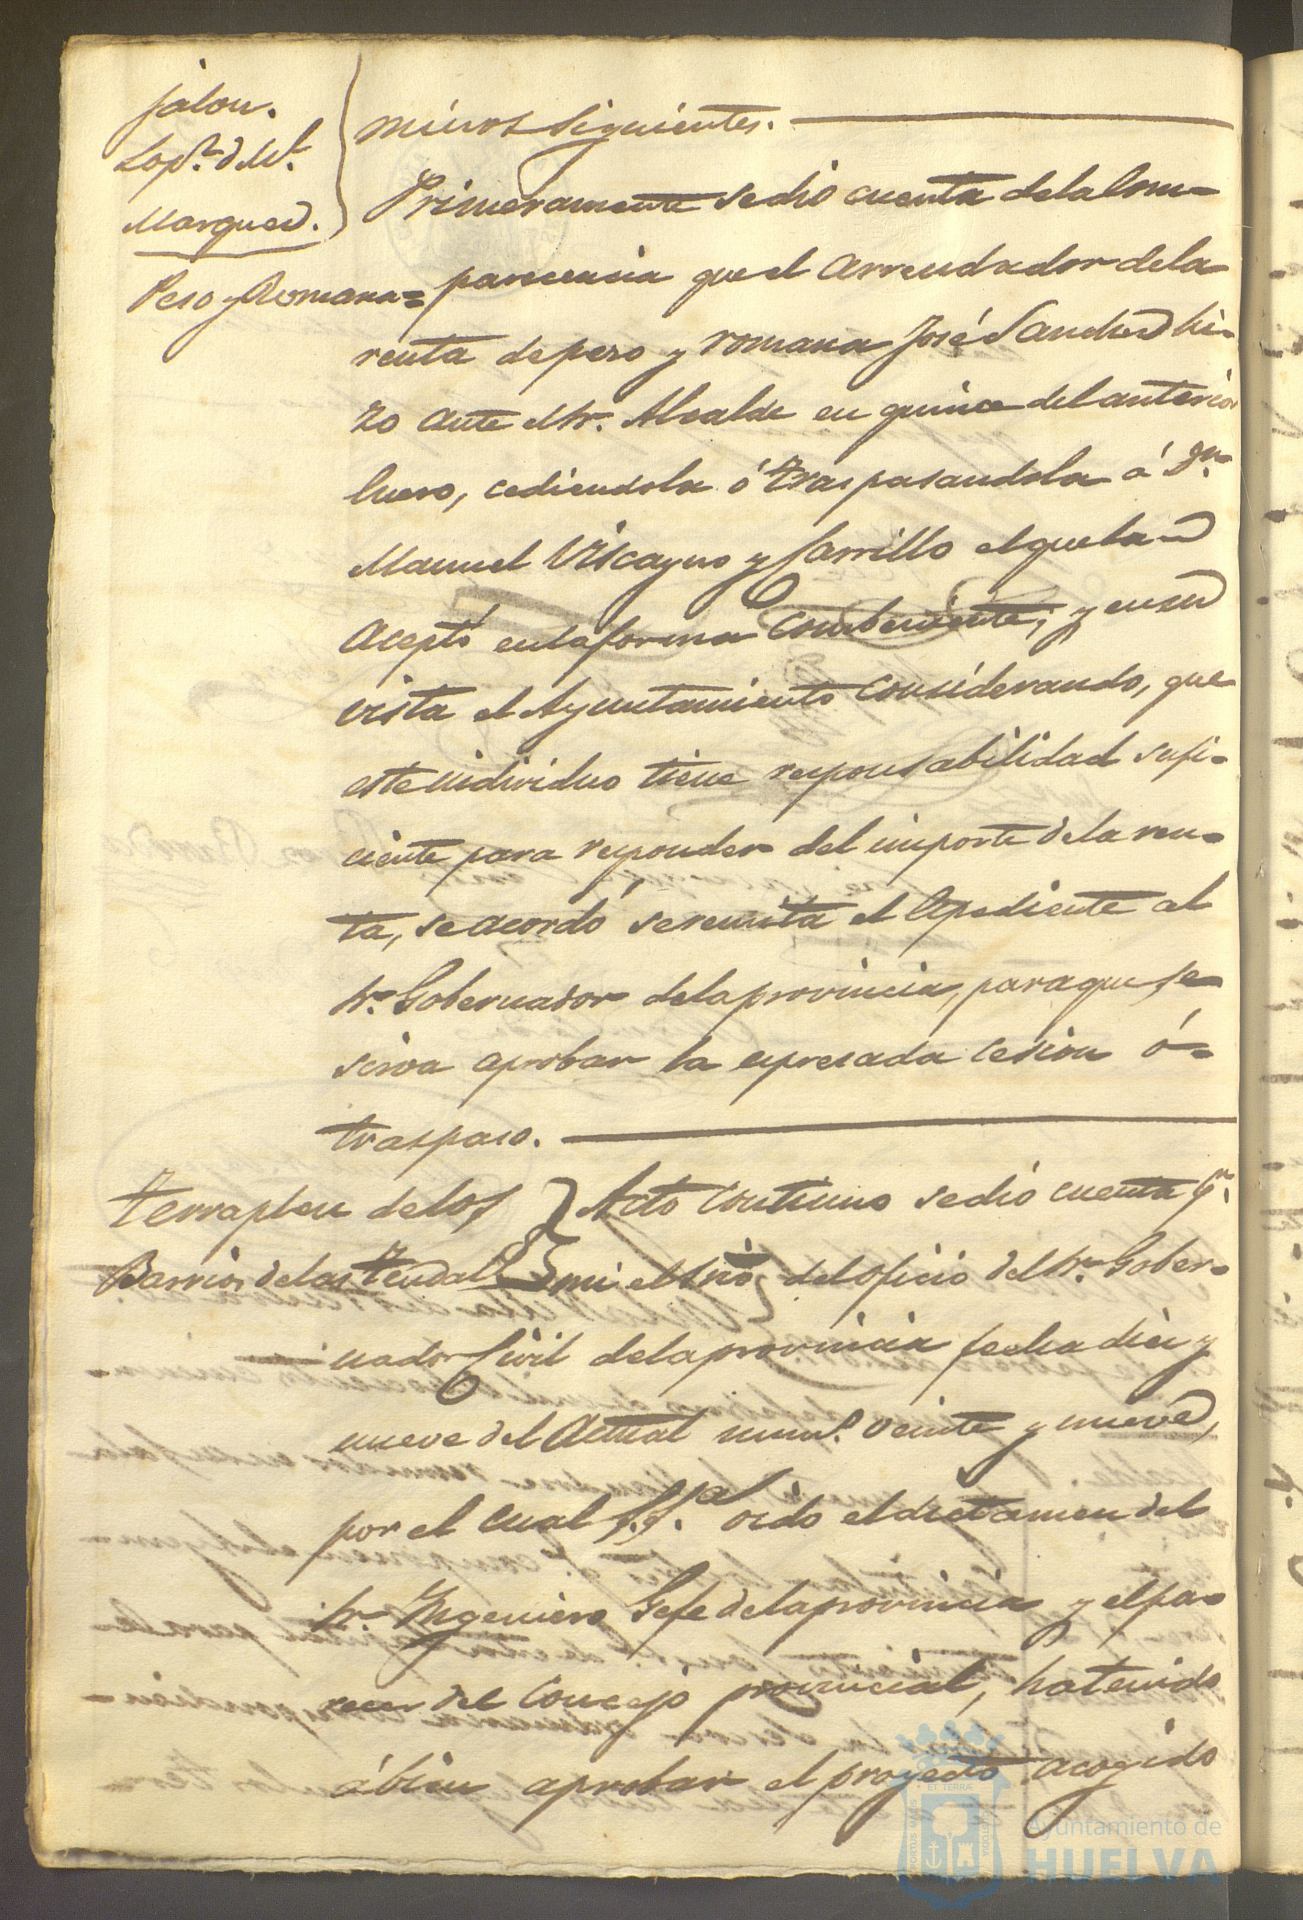 Jalon.
Lopz. d M.l
Marquez.
minos siguientes.
Primeramente se dió cuenta de la Com-
Peso y Romana= parecencia que el Arrendador de la
renta de peso y romana José Sanchez hi-
zo ante el Sr. Alcalde en quince del anterior
Enero, cediendola ó traspasandola á Dn.
Manuel Viscayno y Carrillo el que la
acepto en la forma combeniente; y en su
vista el Ayuntamiento considerando, que
este individuo tiene responsabilidad sufi-
ciente para responder del importe de la ren-
ta, se acordó se remita el Espediente al
Sr. Gobernador de la provincia, para que se
sirva aprobar la espresada cesion ó
traspaso.
Terraplen de los Acto continuo se dió cuenta pr.
Barrios de las Tendal.s mi el Srio. del oficio del Sr. Gober-
nador Civil de la provincia fecha diez y
nueve del Actual num.o veinte y nueve,
por el cual S.S.a oido el dictamen del
Sr. Ingeniero Gefe de la provincia y el pa-
recer del Concejo provincial, ha tenido
á bien aprobar el proyecto acogido
PORTUS MARIS ET TERRÆ CUSTODIA
Ayuntamiento de
HUELVA